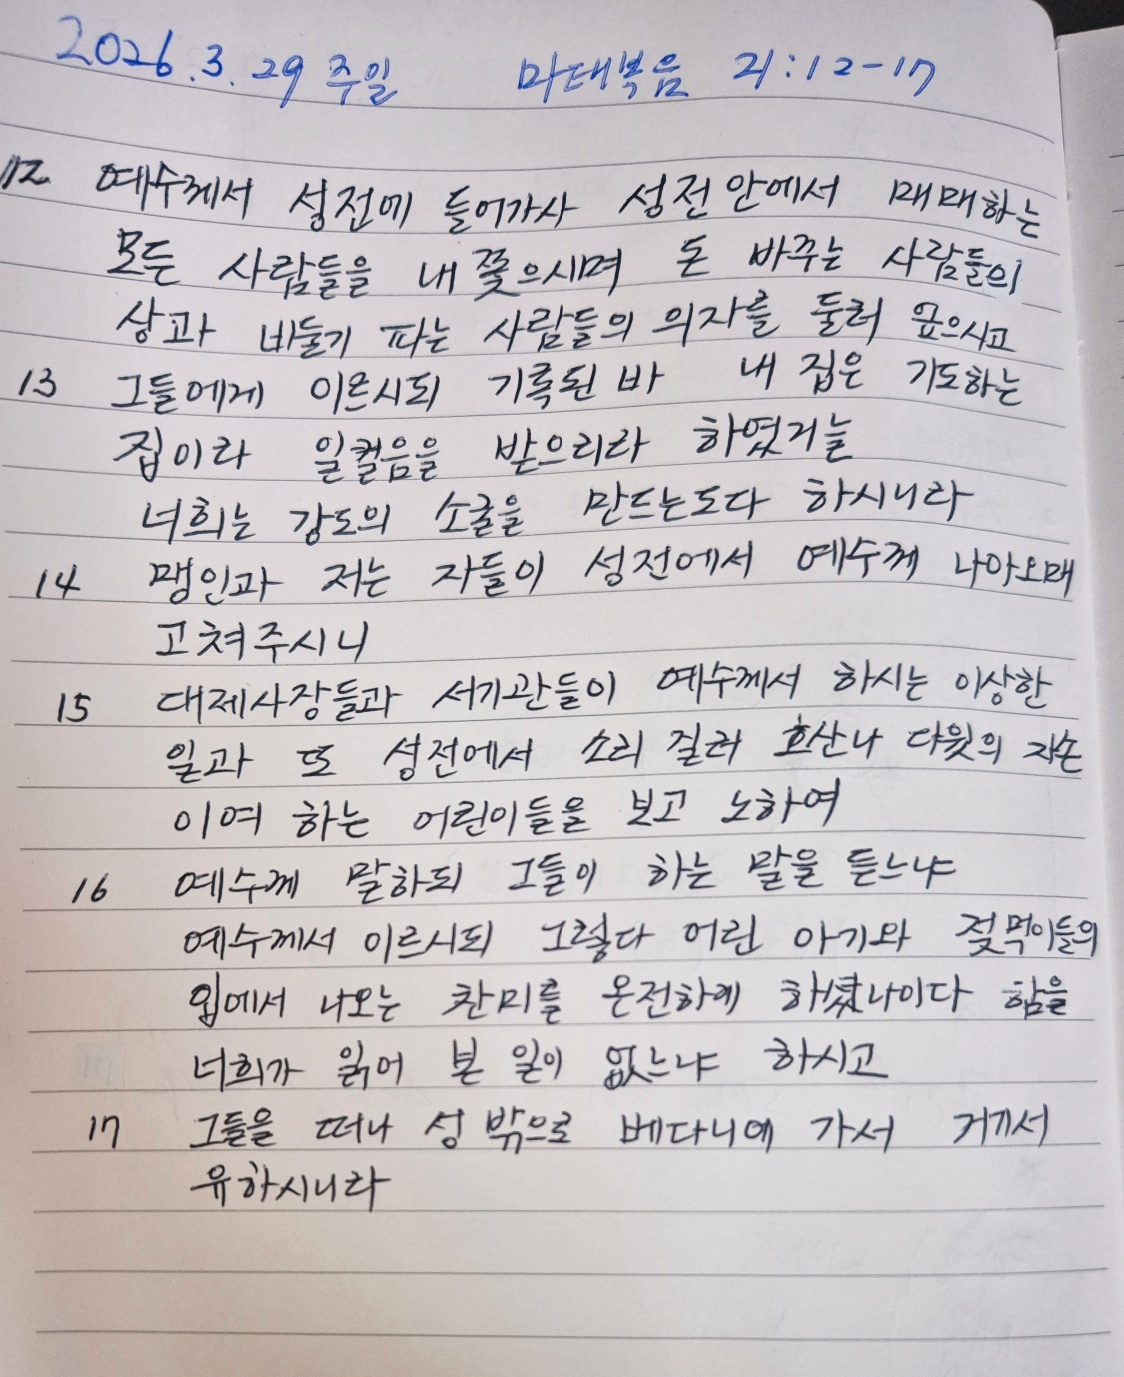 2026.3.29 주일 마태복음 21:12-17
12 예수께서 성전에 들어가사 성전 안에서 매매하는
모든 사람들을 내쫓으시며 돈 바꾸는 사람들의
상과 비둘기 파는 사람들의 의자를 둘러 엎으시고
13 그들에게 이르시되 기록된 바 내 집은 기도하는
집이라 일컬음을 받으리라 하였거늘
너희는 강도의 소굴을 만드는도다 하시니라
14 맹인과 저는 자들이 성전에서 예수께 나아오매
고쳐주시니
15 대제사장들과 서기관들이 예수께서 하시는 이상한
일과 또 성전에서 소리 질러 호산나 다윗의 자손
이여 하는 어린이들을 보고 노하여
16 예수께 말하되 그들이 하는 말을 듣느냐
예수께서 이르시되 그렇다 어린 아기와 젖먹이들의
입에서 나오는 찬미를 온전하게 하셨나이다 함을
너희가 읽어 본 일이 없느냐 하시고
17 그들을 떠나 성 밖으로 베다니에 가서 거기서
유하시니라